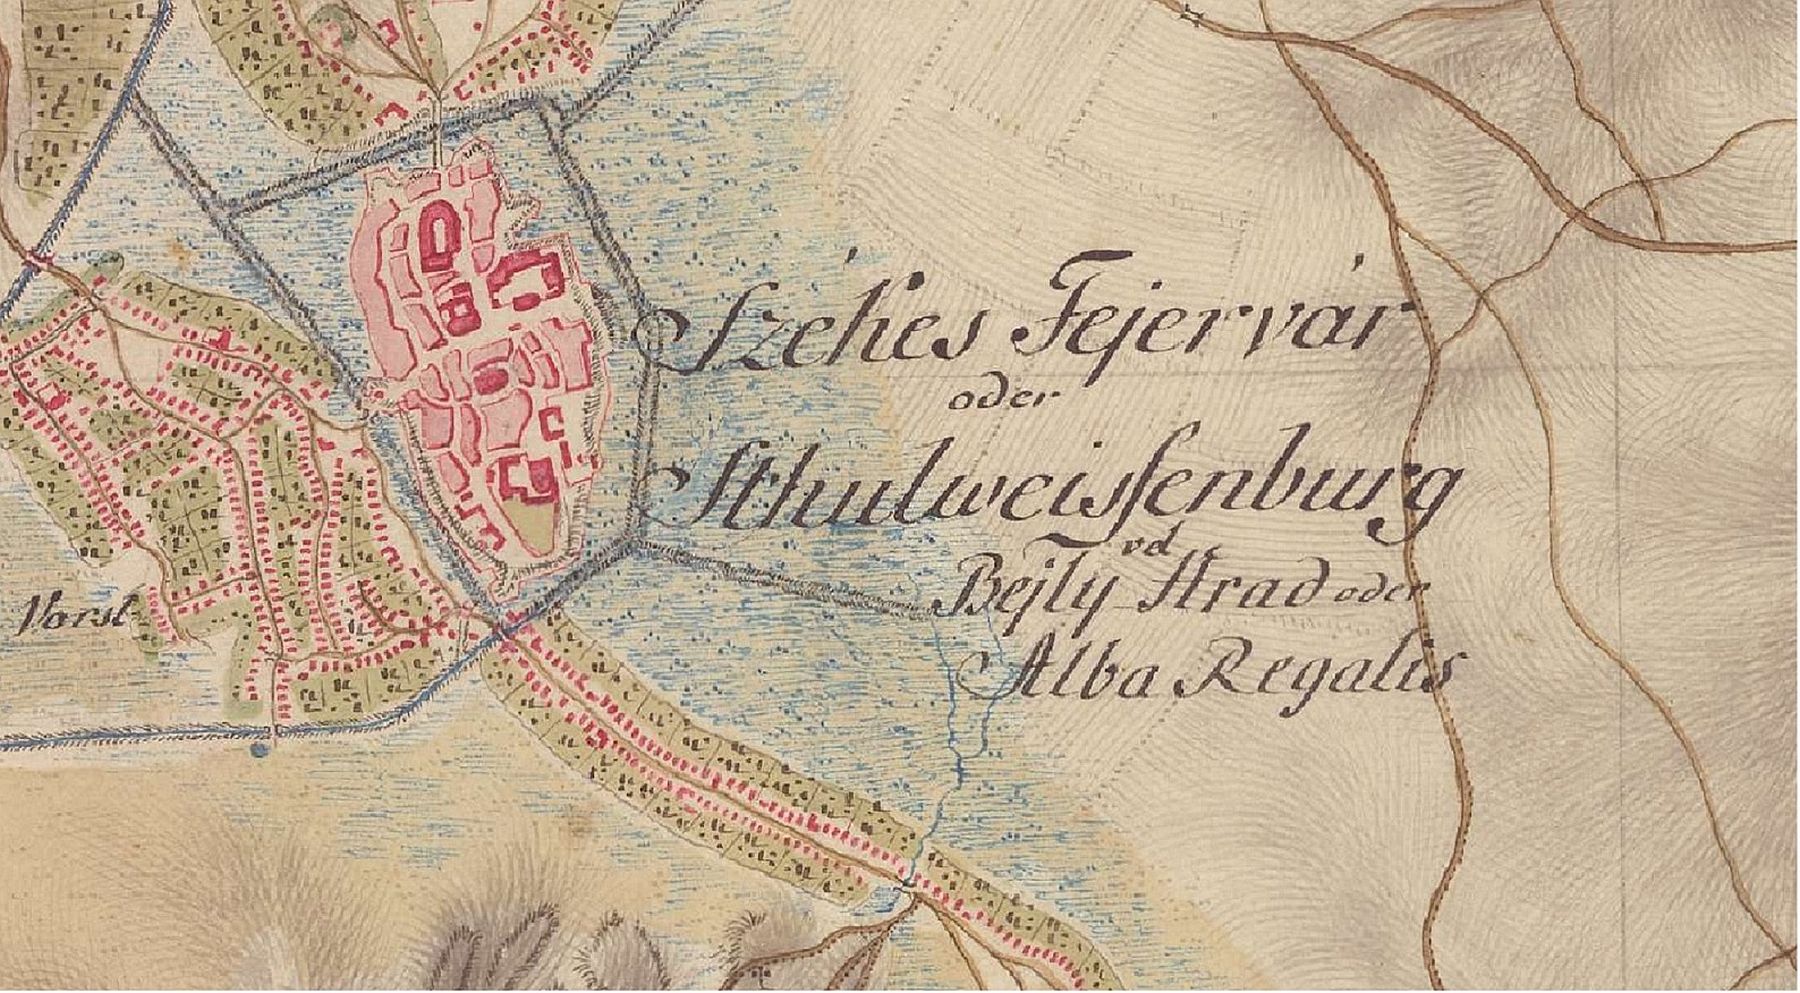 Székes Fejervár
oder
Sthulweissenburg
vd
Bejly Hrad oder
Alba Regalis
Vorst